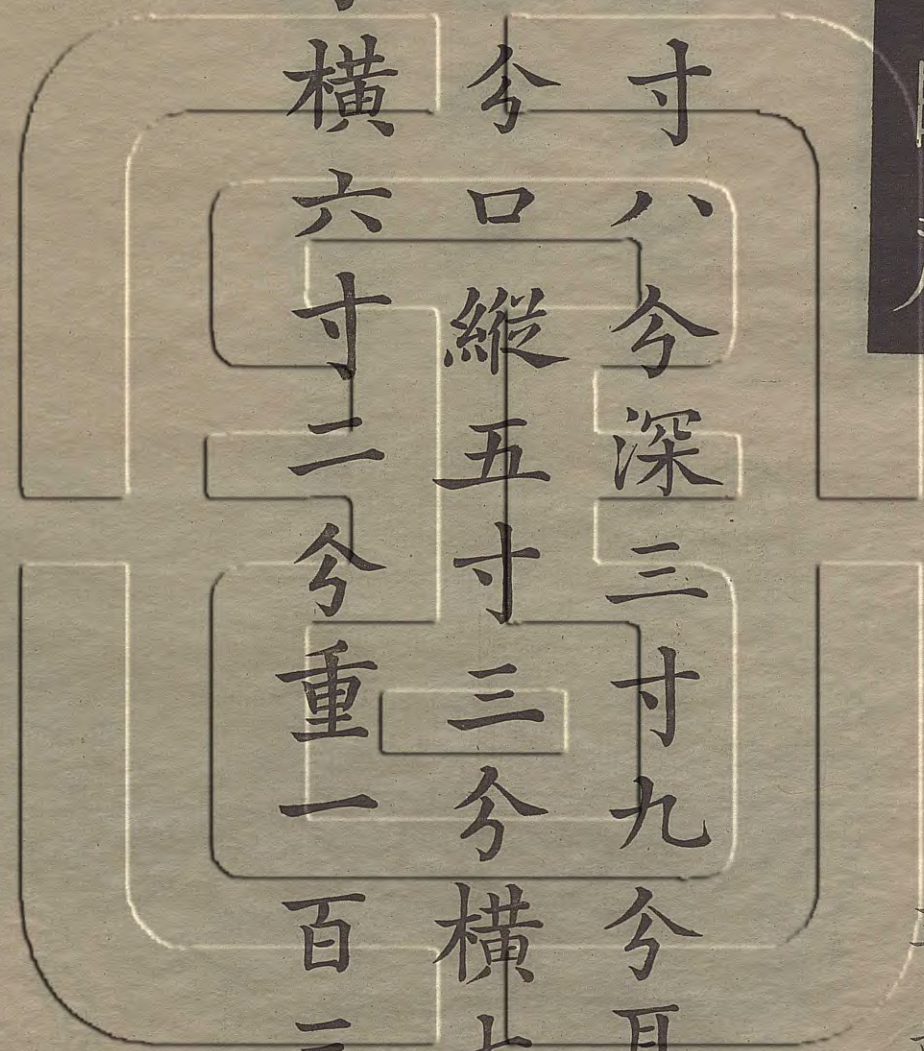 寸八分深三寸九分
分口縱五寸三分橫
橫六寸二分重一百